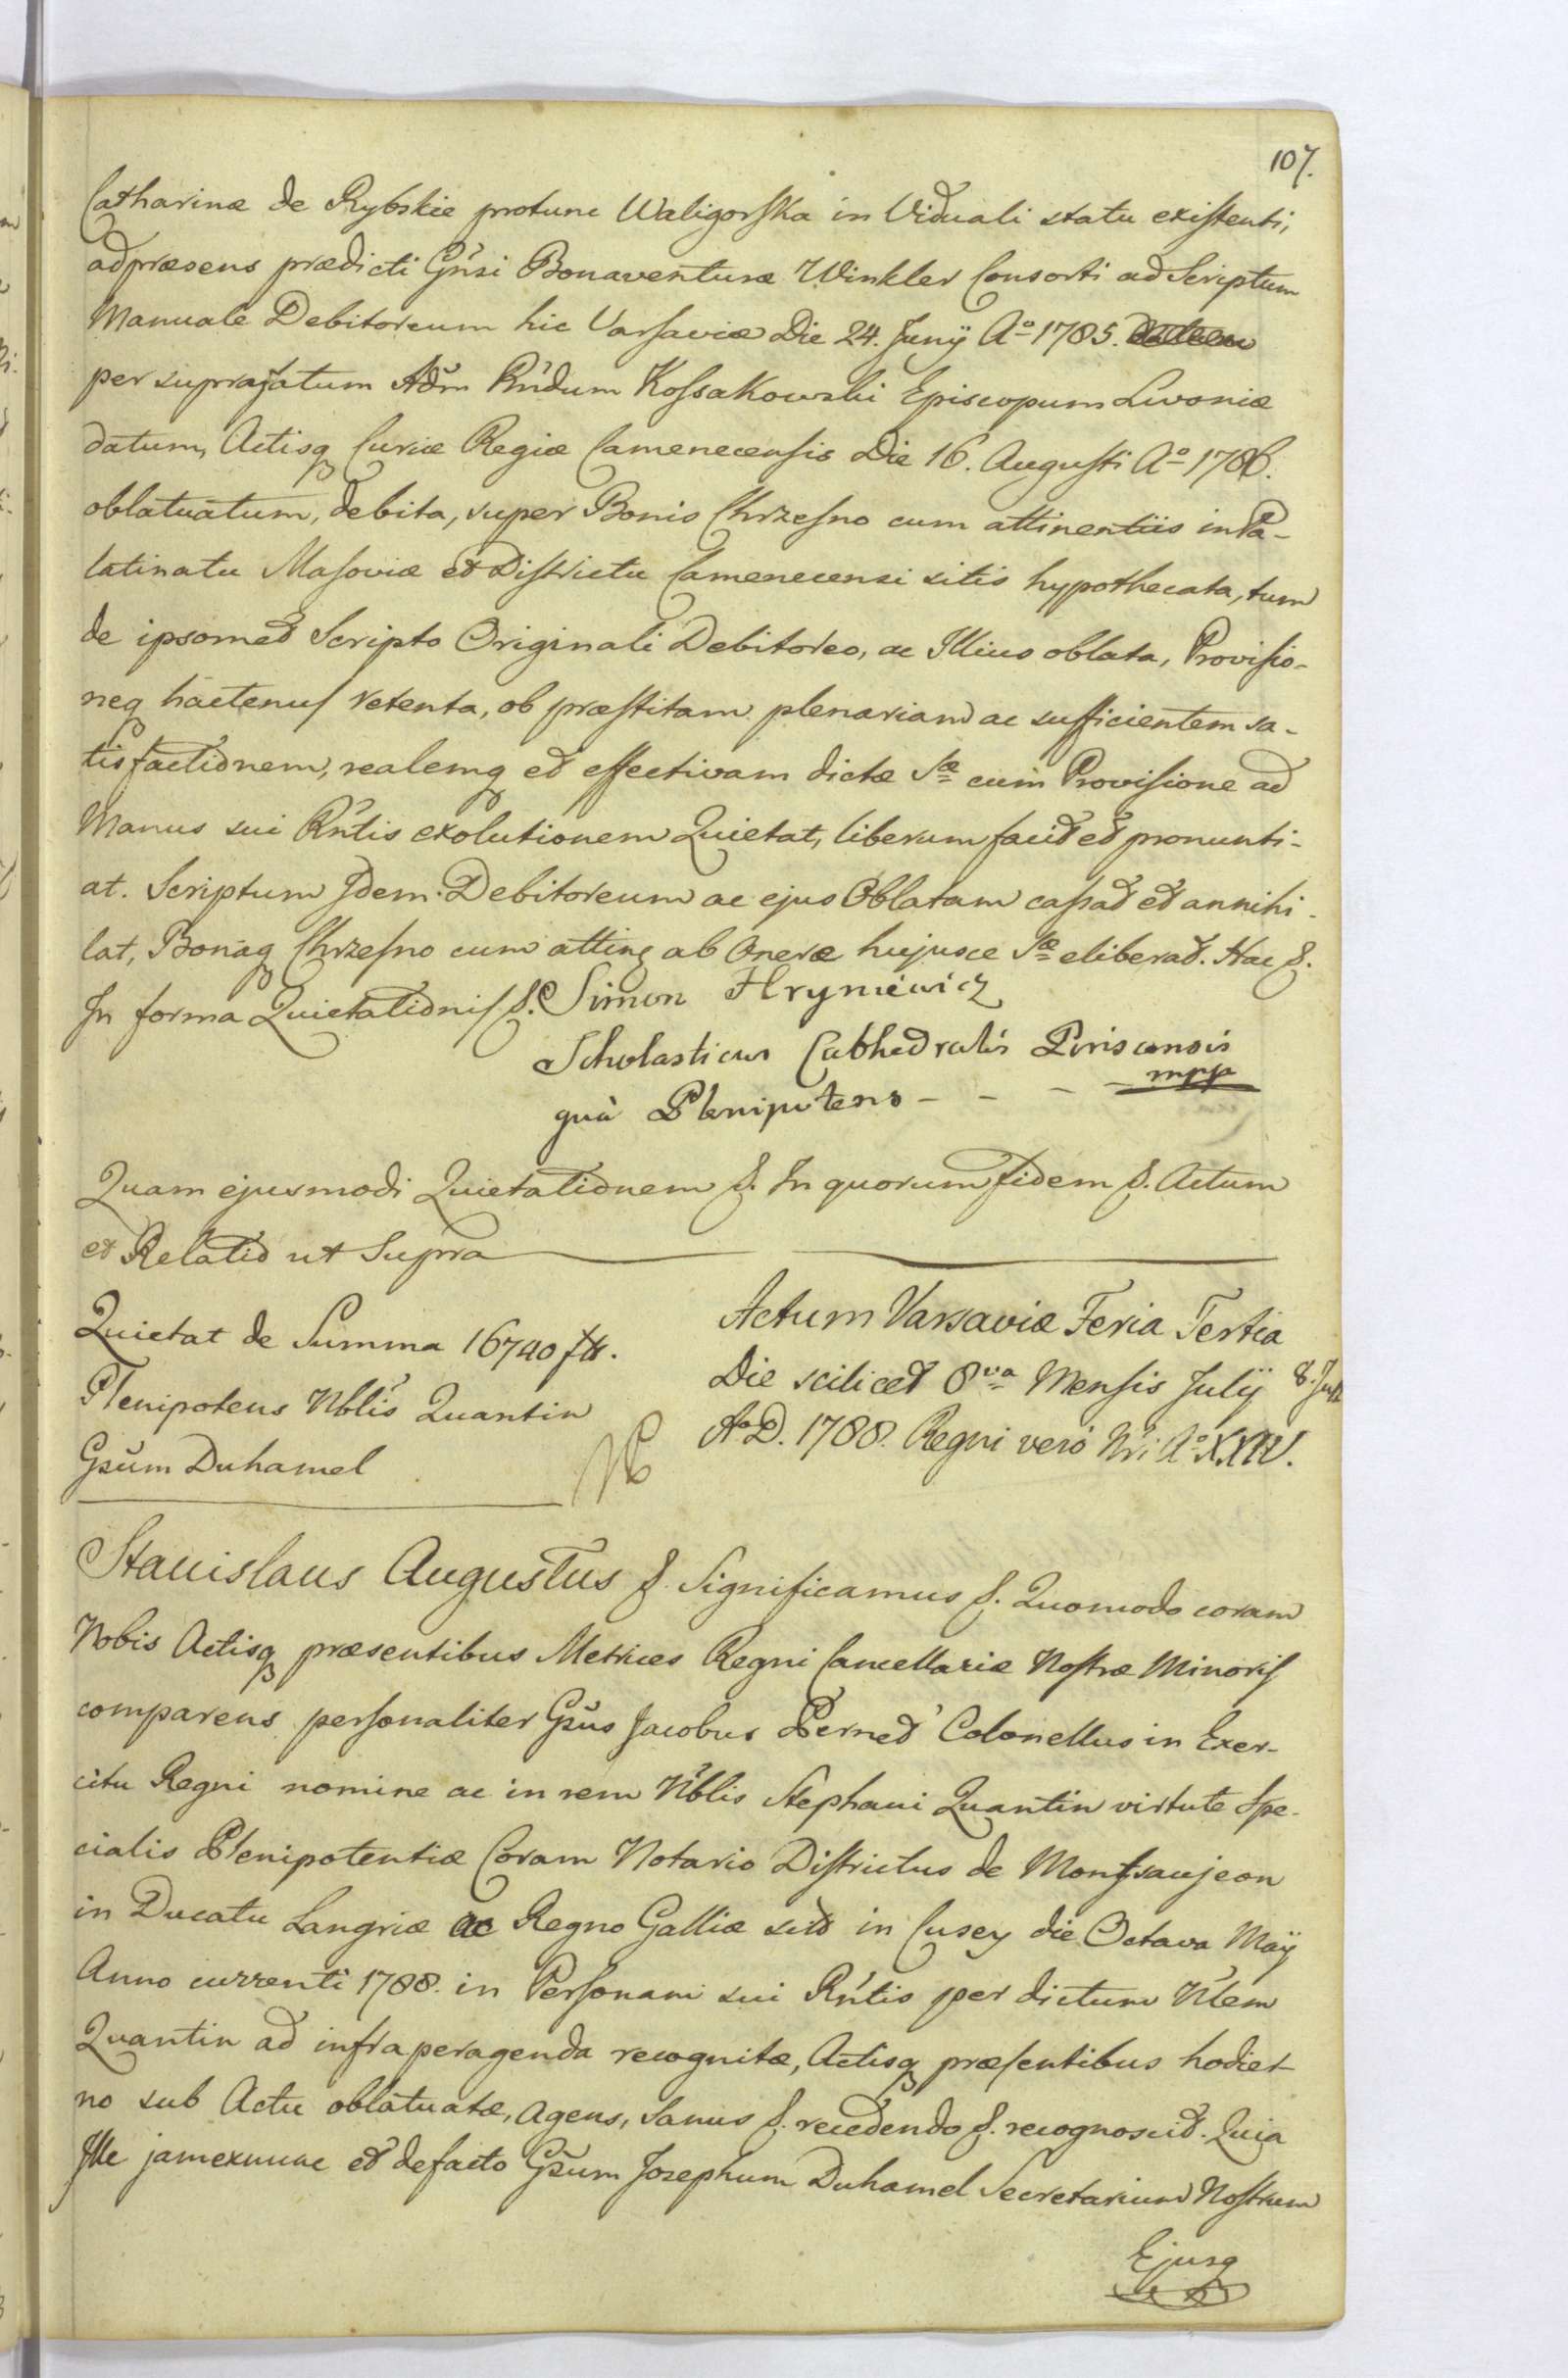 107.
Catharinæ de Rybskie protunc Waligorska in Viduali statu existenti,
adpræsens prædicti Gnsi Bonaventuræ Winkler Consorti ad Scriptum
Manuale Debitoreum hic Varsaviæ Die 24. Junÿ Aº 1785.
per suprafatum Adm Rndum Kossakowski Episcopum Livoniæ
datum, Actisq Curiæ Regiæ Camenecensis Die 16. Augusti Aº 1786.
oblatuatum, debita, super Bonis Chrzesno cum attinentiis in Pa-
latinatu Masoviæ et Districtu Camenecensi sitis hypothecata, tum
de ipsomet Scripto Originali Debitoreo, ac Illius oblata, Provisio-
neq hactenus retenta, ob præstitam plenariam ac sufficientem sa-
tisfactionem, realemq et effectivam dictæ Sæ cum Provisione ad
Manus sui Rntis exolutionem Quietat, liberum facit et pronunti-
at. Scriptum Idem Debitoreum ac ejus Oblatam cassat et annihi-
lat, Bonaq Chrzesno cum atting ab Onere hujusce Sæ eliberat. Hac &.
In forma Quietationis &. Simon Hryniewicz
Scholasticus Cathedralis Pinscensis
quà Plenipotens - - - - mpp
Quam ejusmodi Quietationem &. In quorum fidem &. Actum
et Relatio ut Supra
Quietat de Summa 16740 fl.
Plenipotens Nblis Quantin
Gsum Duhamel
Actum Varsaviæ Feria Tertia
Die scilicet 8va Mensis Julÿ 8. Julÿ
AoD. 1788. Regni vero Nri Aº XXIV.
Stanislaus Augustus &. Significamus &. Quomodo coram
Nobis Actisq præsentibus Metrices Regni Cancellariæ Nostræ Minoris
comparens personaliter Gsus Jacobus Pernet Colonellus in Exer-
citu Regni nomine ac in rem Nblis Stephani Quantin virtute Spe-
cialis Plenipotentiæ Coram Notario Districtus de Montsaujeon
in Ducatu Langriæ ac Regno Galliæ sito in Cusey die Octava Maÿ
Anno currenti 1788. in Personam sui Rntis per dictum Nlem
Quantin ad infra peragenda recognitæ, Actisq præsentibus hodier-
no sub Actu oblatuatæ, agens, sanus &. recedendo &. recognoscit. Quia
Ille jamexnunc et defacto Gsum Josephum Duhamel Secretarium Nostrum
Ejusq